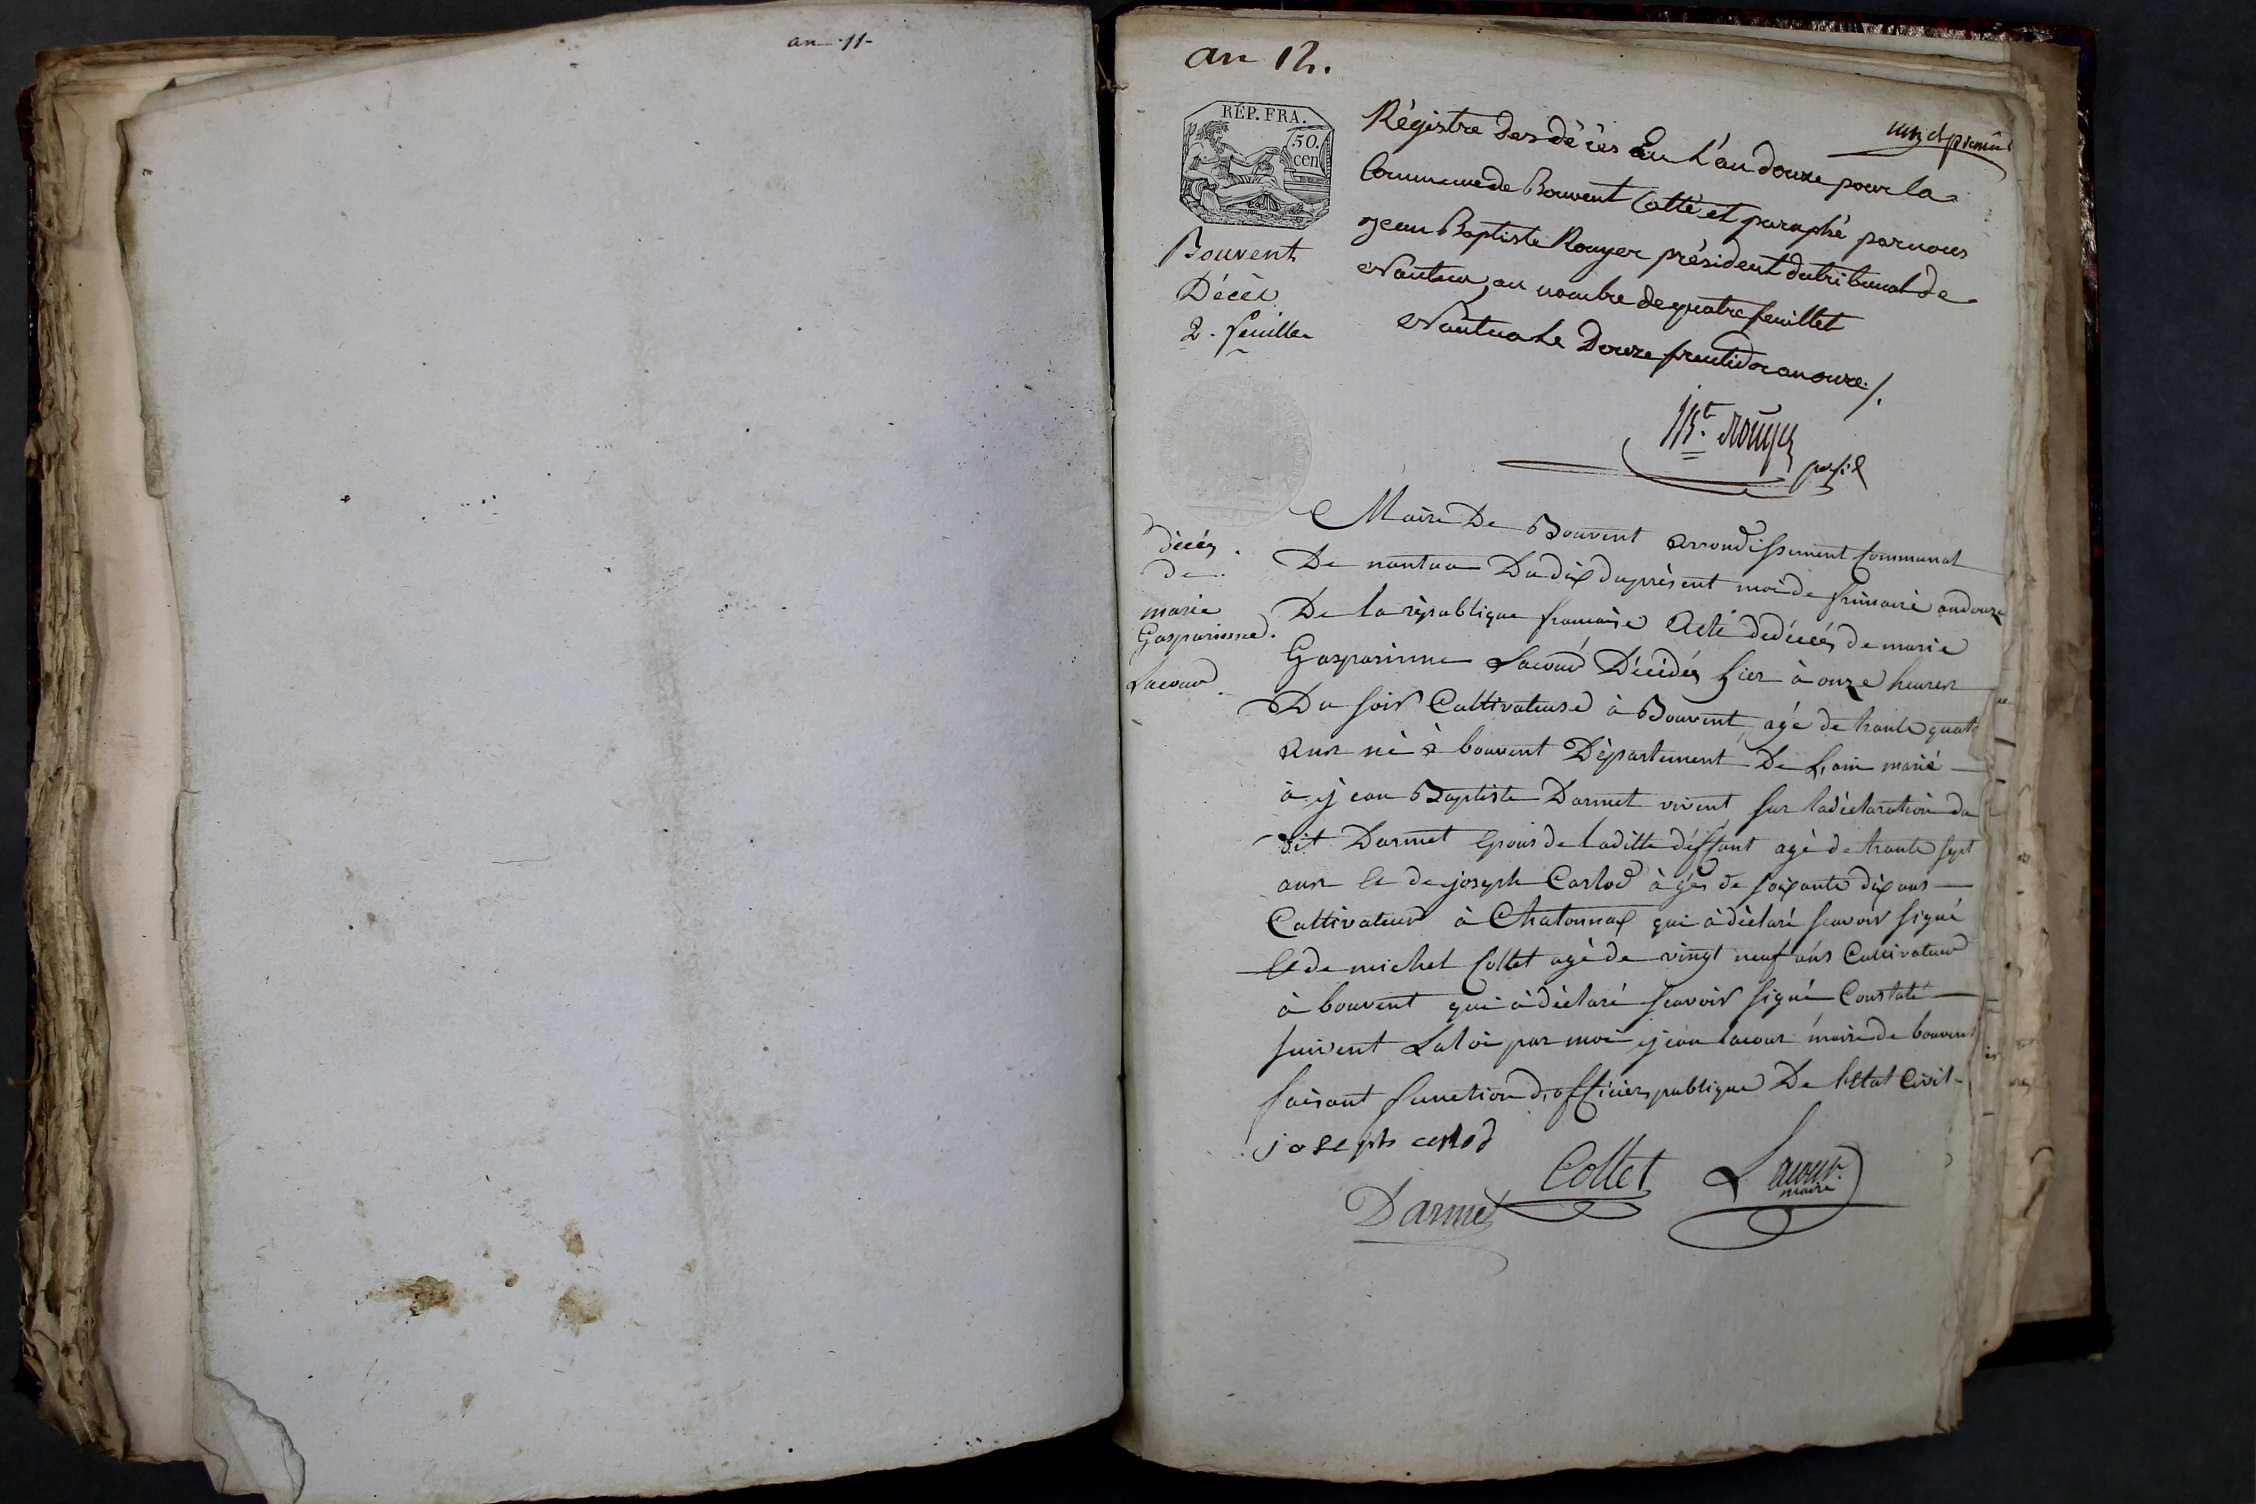 an 11
an 12.
RÉP. FRA.
50.
cen
un et premier
Régistre des décès En L'an douze pour la
Commune de Bouvent Cotté et paraphé par nous
Jean Baptiste Rouyer président du tribunal de
Nantua, au nombre de quatre feuillet
Nantua Le Douze fructidor an onze ./.
Bouvent
Décès
2. feuilles
JBte Rouyer
présid
Mairie De Bouvent arrondissement Communal
De nantua Du dix du présent mois de frimaire an douze
De la république française Acte de décés de marie
Gasparinne Lacour Décédés hier à onze heures
Du soir Cultivateuse à Bouvent, agé de trante quatre
ans né à bouvent Département De L'ain marié
à jean Baptiste Darmet vivent sur la déclaration du
dit Darmet Epous de laditte déffant agé de trante sept
ans Et de joseph Carlod àgés de soixante dix ans
Cultivateur à Chatonnax qui à déclaré scavoir signé
Et de michel Collet agé de vingt neuf ans Cultivateur
à bouvent qui à déclaré scavoir signé Constaté
suivent La loi par moi jean lacour maire de bouvent
faisant function d'officier publique De l'Etat Civil
décés
de
marie
Gasparinne
Lacour
joseph carlod
Collet
Lacour
maire
Darmet